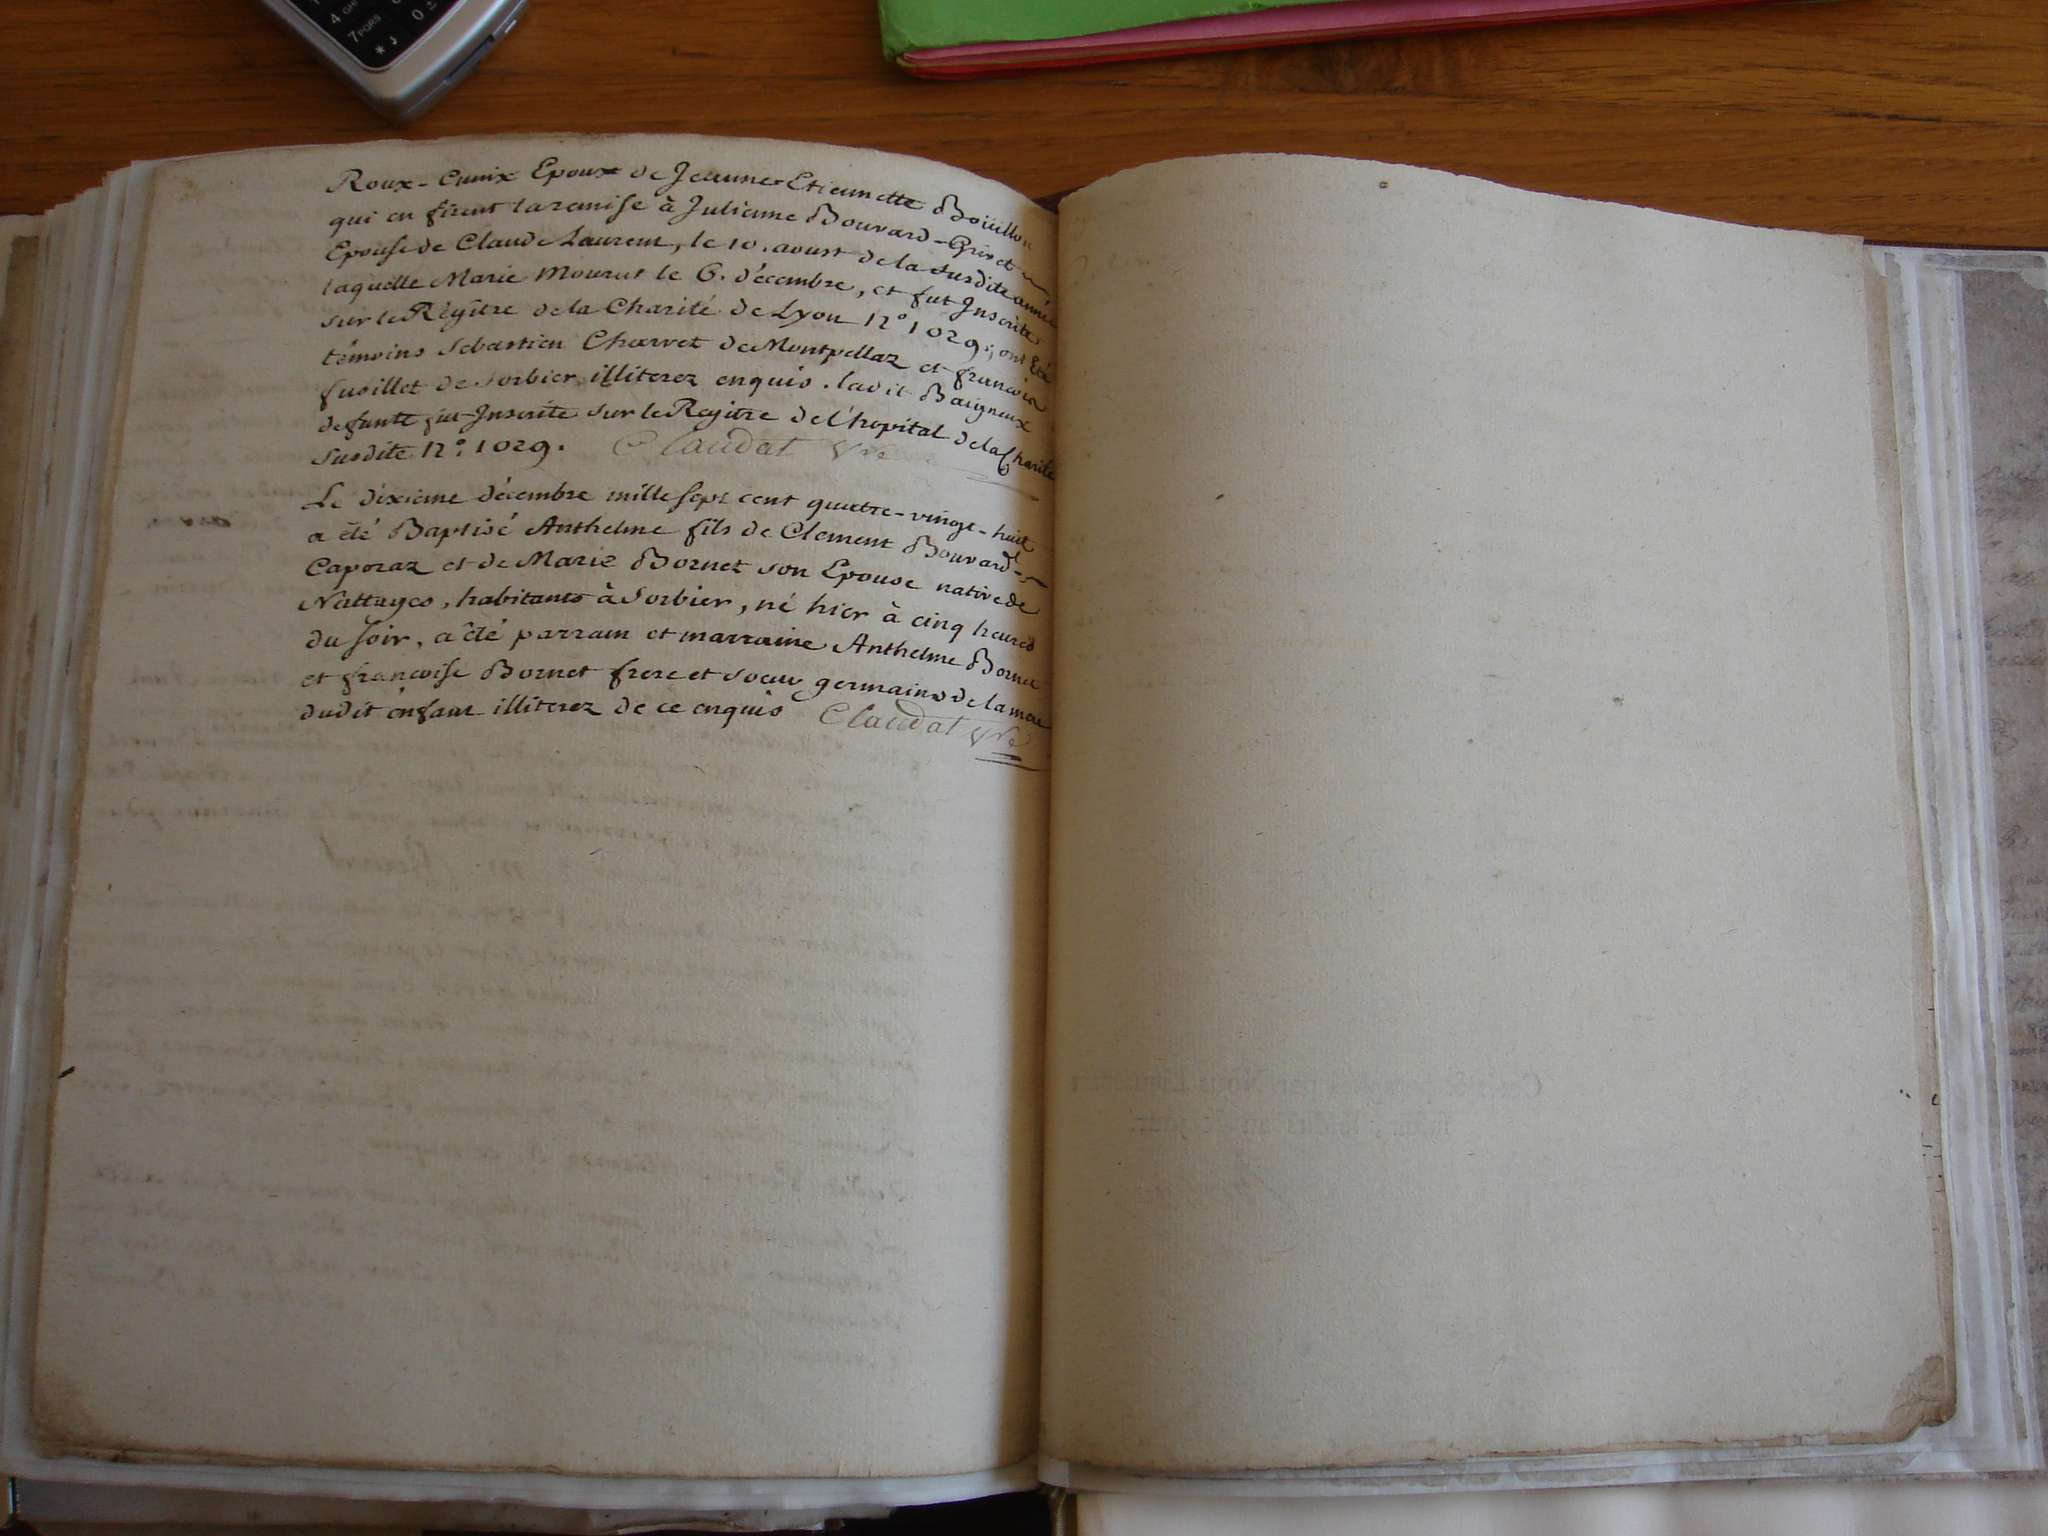 Roux-Cunix Epoux de Jeanne-Etiennette Boüillon
qui en firent la remise à Julienne Bouvard-Grivet
Epouse de Claude Laurent, le 10. aoust de la susdite année
laquelle Marie Mourut le 6. décembre, et fut Inscrite
sur le Régître de la Charité de Lyon N° 1029; ont Eté
témoins Sebastien Charvet de Montpellaz et francois
fusillet de Sorbier illiterez enquis. ladit Baigneux
defunte fut Inscrite sur le Regître de l'hopital de la Charité
susdite N° 1029. Claudat vre
Le dixieme décembre mille sept cent quatre-vingt-huit
a été Baptisé Anthelme fils de Clement Bouvard-
Caporaz et de Marie Bornet son Epouse native de
Nattages, habitants à Sorbier, né hier à cinq heures
du soir, a été parrain et marraine Anthelme Bornet
et francoise Bornet frere et soeur germains de la mere
dudit enfant illiterez de ce enquis Claudat vre
4 GHI
7 PQRS
0 ±
*